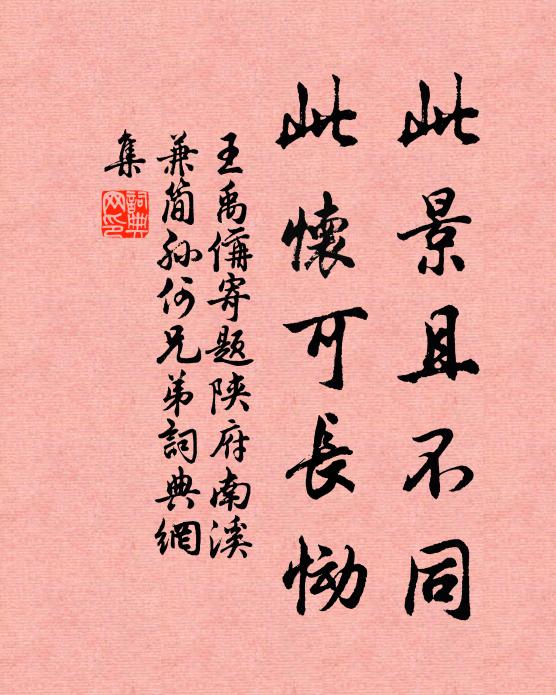 此景且不同
此懷可長慟
王禹偁寄題陝府南溪
兼簡孫何兄弟詞典網
集
詞典
网印